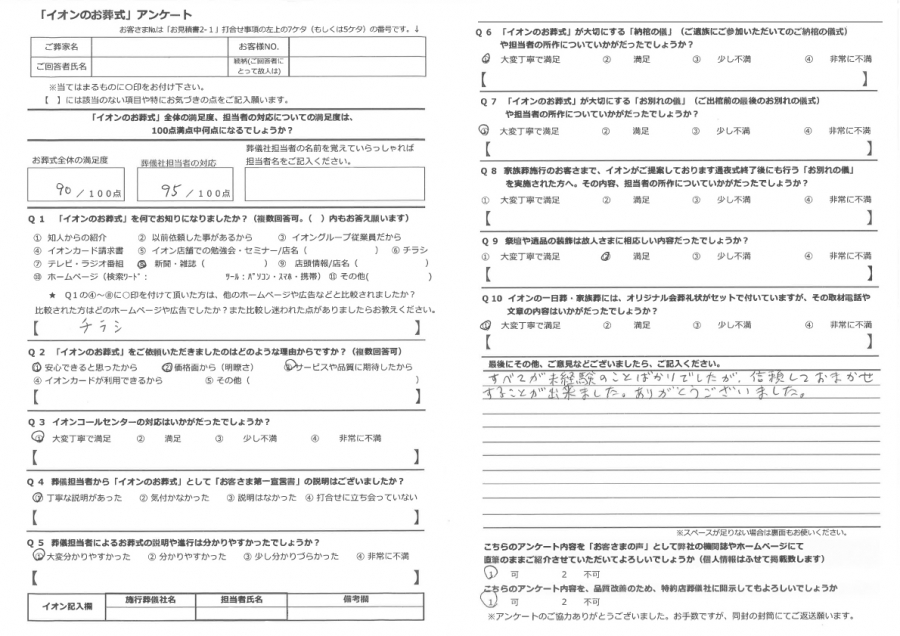 「イオンのお葬式」アンケート
お客さま№は「お見積書2-1」打合せ事項の左上の7ケタ（もしくは5ケタ）の番号です。↓
ご葬家名 お客様NO.
ご回答者氏名 続柄(ご回答者にとって故人は)
※当てはまるものに○印をお付け下さい。
【 】には該当のない項目や特にお気づきの点をご記入願います。
「イオンのお葬式」全体の満足度、担当者の対応についての満足度は、
100点満点中何点になるでしょうか？
お葬式全体の満足度 葬儀社担当者の対応
葬儀社担当者の名前を覚えていらっしゃれば
担当者名をご記入ください。
90 /100点 95 /100点
Q１ 「イオンのお葬式」を何でお知りになりましたか？（複数回答可。（ ）内もお答え願います）
① 知人からの紹介 ② 以前依頼した事があるから ③ イオングループ従業員だから
④ イオンカード請求書 ⑤ イオン店舗での勉強会・セミナー/店名（ ） ⑥ チラシ
⑦ テレビ・ラジオ番組 ⑧ 新聞・雑誌（ ） ⑨ 店頭情報/店名（ ）
⑩ ホームページ（検索ﾜｰﾄﾞ： ﾂｰﾙ：ﾊﾟｿｺﾝ・ｽﾏﾎ・携帯） ⑪ その他( )
★ Q１の④～⑧に○印を付けて頂いた方は、他のホームページや広告などと比較されましたか？
比較された方はどのホームページや広告でしたか？また比較し迷われた点がありましたらお教えください。
【 チラシ 】
Q２ 「イオンのお葬式」をご依頼いただきましたのはどのような理由からですか？（複数回答可）
① 安心できると思ったから ② 価格面から（明瞭さ） ③ サービスや品質に期待したから
④ イオンカードが利用できるから ⑤ その他（ ）
【 】
Q３ イオンコールセンターの対応はいかがだったでしょうか？
① 大変丁寧で満足 ② 満足 ③ 少し不満 ④ 非常に不満
【 】
Q４ 葬儀担当者から「イオンのお葬式」として「お客さま第一宣言書」の説明はございましたか？
① 丁寧な説明があった ② 気付かなかった ③ 説明はなかった ④ 打合せに立ち会っていない
【 】
Q５ 葬儀担当者によるお葬式の説明や進行は分かりやすかったでしょうか？
① 大変分かりやすかった ② 分かりやすかった ③ 少し分かりづらかった ④ 非常に不満
【 】
イオン記入欄 施行葬儀社名 担当者氏名 備考欄
Q６ 「イオンのお葬式」が大切にする「納棺の儀」（ご遺族にご参加いただいてのご納棺の儀式）
や担当者の所作についていかがだったでしょうか？
① 大変丁寧で満足 ② 満足 ③ 少し不満 ④ 非常に不満
【 】
Q７ 「イオンのお葬式」が大切にする「お別れの儀」（ご出棺前の最後のお別れの儀式）
や担当者の所作についていかがだったでしょうか？
① 大変丁寧で満足 ② 満足 ③ 少し不満 ④ 非常に不満
【 】
Q８ 家族葬施行のお客さまで、イオンがご提案しております通夜式終了後にも行う「お別れの儀」
を実施された方へ。その内容、担当者の所作についていかがだったでしょうか？
① 大変丁寧で満足 ② 満足 ③ 少し不満 ④ 非常に不満
【 】
Q９ 祭壇や遺品の装飾は故人さまに相応しい内容だったでしょうか？
① 大変丁寧で満足 ② 満足 ③ 少し不満 ④ 非常に不満
【 】
Q10 イオンの一日葬・家族葬には、オリジナル会葬礼状がセットで付いていますが、その取材電話や
文章の内容はいかがだったでしょうか？
① 大変丁寧で満足 ② 満足 ③ 少し不満 ④ 非常に不満
【 】
最後にその他、ご意見などございましたら、ご記入ください。
すべてが未経験のことばかりでしたが、信頼しておまかせ
することが出来ました。ありがとうございました。
※スペースが足りない場合は裏面もお使いください。
こちらのアンケート内容を「お客さまの声」として弊社の機関誌やホームページにて
直筆のままご紹介させていただいてよろしいでしょうか（個人情報はふせて掲載致します）
1 可 2 不可
こちらのアンケート内容を、品質改善のため、特約店葬儀社に開示してもよろしいでしょうか
1 可 2 不可
※アンケートのご協力ありがとうございました。お手数ですが、同封の封筒にてご返送願います。